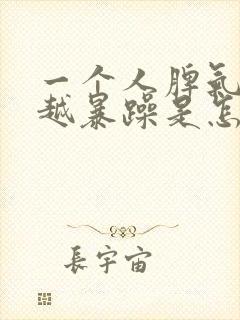 一个人脾氣
越暴躁是怎
長宇宙